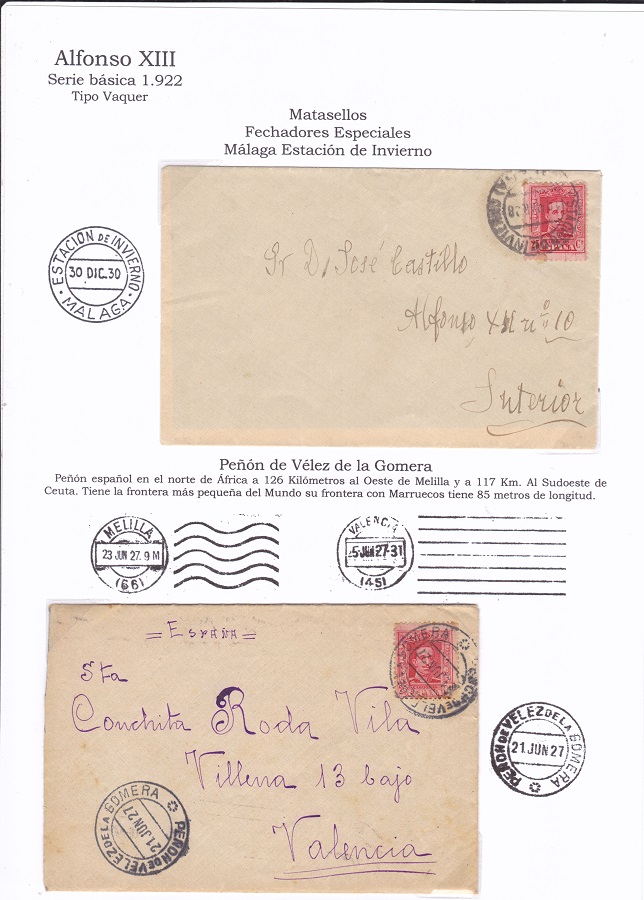 Alfonso XIII
Serie básica 1.922
Tipo Vaquer
Matasellos
Fechadores Especiales
Málaga Estación de Invierno
ESTACION DE INVIERNO
30 DIC. 30
MALAGA
Sr D. José Castillo
Alfonso XII nº 10
Interior
Peñón de Vélez de la Gomera
Peñón español en el norte de África a 126 Kilómetros al Oeste de Melilla y a 117 Km. Al Sudoeste de
Ceuta. Tiene la frontera más pequeña del Mundo su frontera con Marruecos tiene 85 metros de longitud.
MELILLA
23 JUN 27. 9 M
(66)
VALENCIA
(45)
= ESPAÑA =
Sta
Conchita Roda Vila
Villena 13 bajo
Valencia
PEÑON DE VELEZ DE LA GOMERA
21 JUN 27
PEÑON DE VELEZ DE LA GOMERA
21. JUN 27